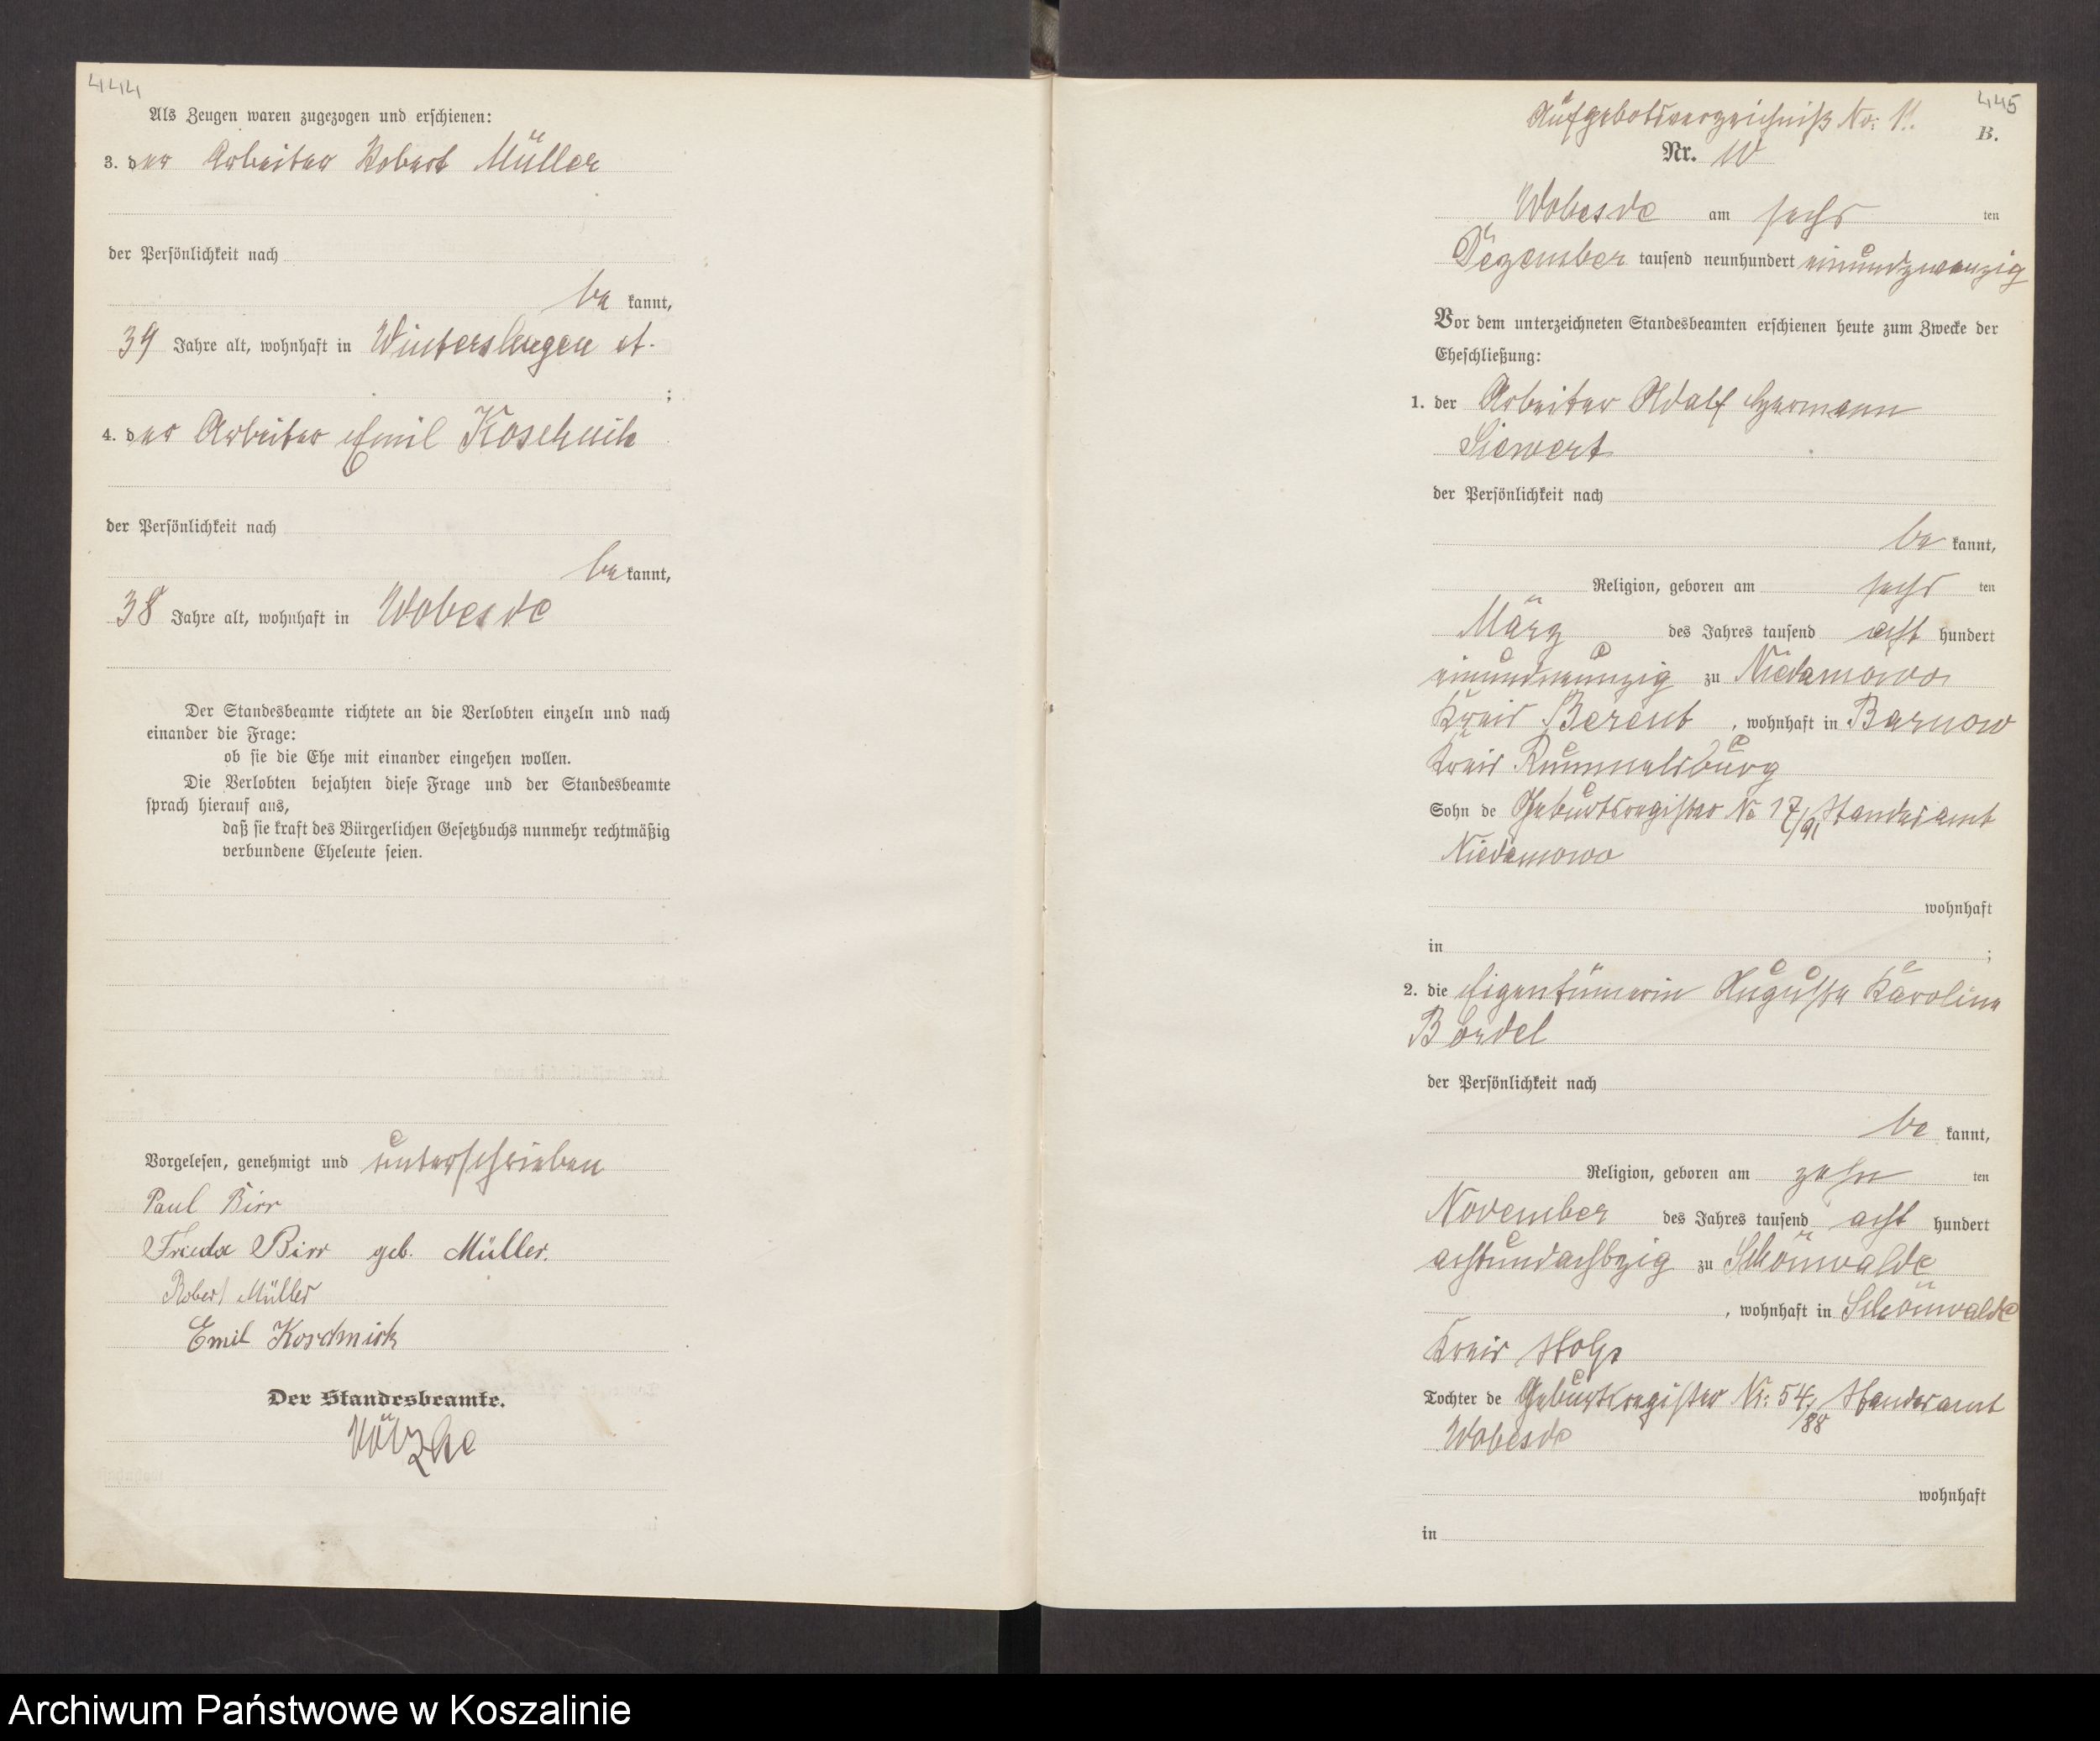 444
Als Zeugen waren zugezogen und erschienen:
3. der Arbeiter Robert Müller
der Persönlichkeit nach
be kannt,
39 Jahre alt, wohnhaft in Wintershagen
;
4. der Arbeiter Emil Koschnik
der Persönlichkeit nach
be kannt,
38 Jahre alt, wohnhaft in Wobesde
Der Standesbeamte richtete an die Verlobten einzeln und nach
einander die Frage:
ob sie die Ehe mit einander eingehen wollen.
Die Verlobten bejahten diese Frage und der Standesbeamte
sprach hierauf aus,
daß sie kraft des Bürgerlichen Gesetzbuchs nunmehr rechtmäßig
verbundene Eheleute seien.
Vorgelesen, genehmigt und unterschrieben
Paul Birr
Frieda Birr geb. Müller.
Robert Müller
Emil Koschnick
Der Standesbeamte.
445
Aufgebotsverzeichniß No: 11.
B.
Nr. 10
Wobesde am sechs ten
Dezember tausend neunhundert einundzwanzig
Vor dem unterzeichneten Standesbeamten erschienen heute zum Zwecke der
Eheschließung:
1. der Arbeiter Adolf Hermann
Siewert
der Persönlichkeit nach
be kannt,
Religion, geboren am sechs ten
März des Jahres tausend acht hundert
einundneunzig zu Niedamowo
Kreis Berent , wohnhaft in Barnow
Kreis Rummelsburg
Sohn de Geburtsregister No 17/91 Standesamt
Niedamowo
wohnhaft
in ;
2. die Eigentümerin Auguste Karoline
Bordel
der Persönlichkeit nach
be kannt,
Religion, geboren am zehn ten
November des Jahres tausend acht hundert
achtundachtzig zu Schönwalde
, wohnhaft in Schönwalde
Kreis Stolp
Tochter de Geburtsregister Nr: 54/88 Standesamt
Wobesde
wohnhaft
in
Archiwum Państwowe w Koszalinie